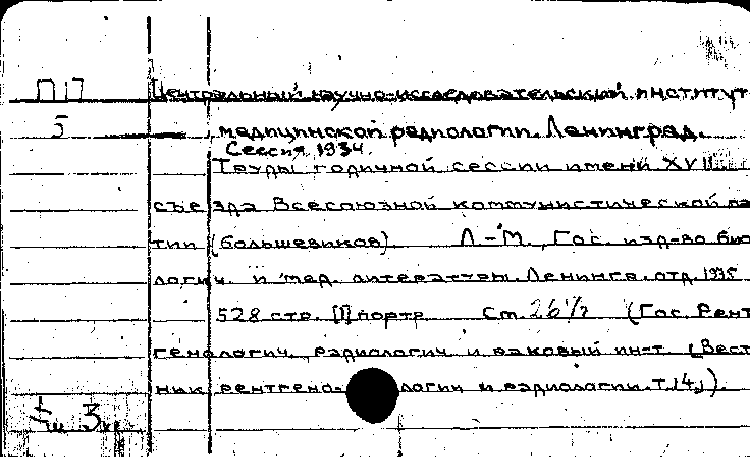 ПП Центральный научно-исследовательский институт
5 медицинской радиологии. Ленинград.
Сессия 1934.
Труды годичной сессии имени XVII
съезда Всесоюзной коммунистической па
тии (большевиков). Л-М., Гос. изд-во био
логич. и мед. литературы. Ленингр. отд. 1935
528 стр. [1] портр. См. 26 1/2 (Гос. Рент
генологич., радиологич. и раковый ин-т. (Вест
ник рентгено-логии и радиологии. Т. 14,).